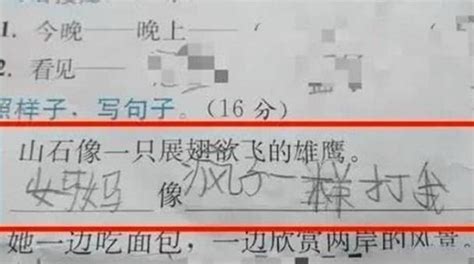 1. 今晚——晚上——
2. 看见——
照样子，写句子。（16 分）
山石像一只展翅欲飞的雄鹰。
妈妈 像 疯子一样打我
她一边吃面包，一边欣赏两岸的风景。